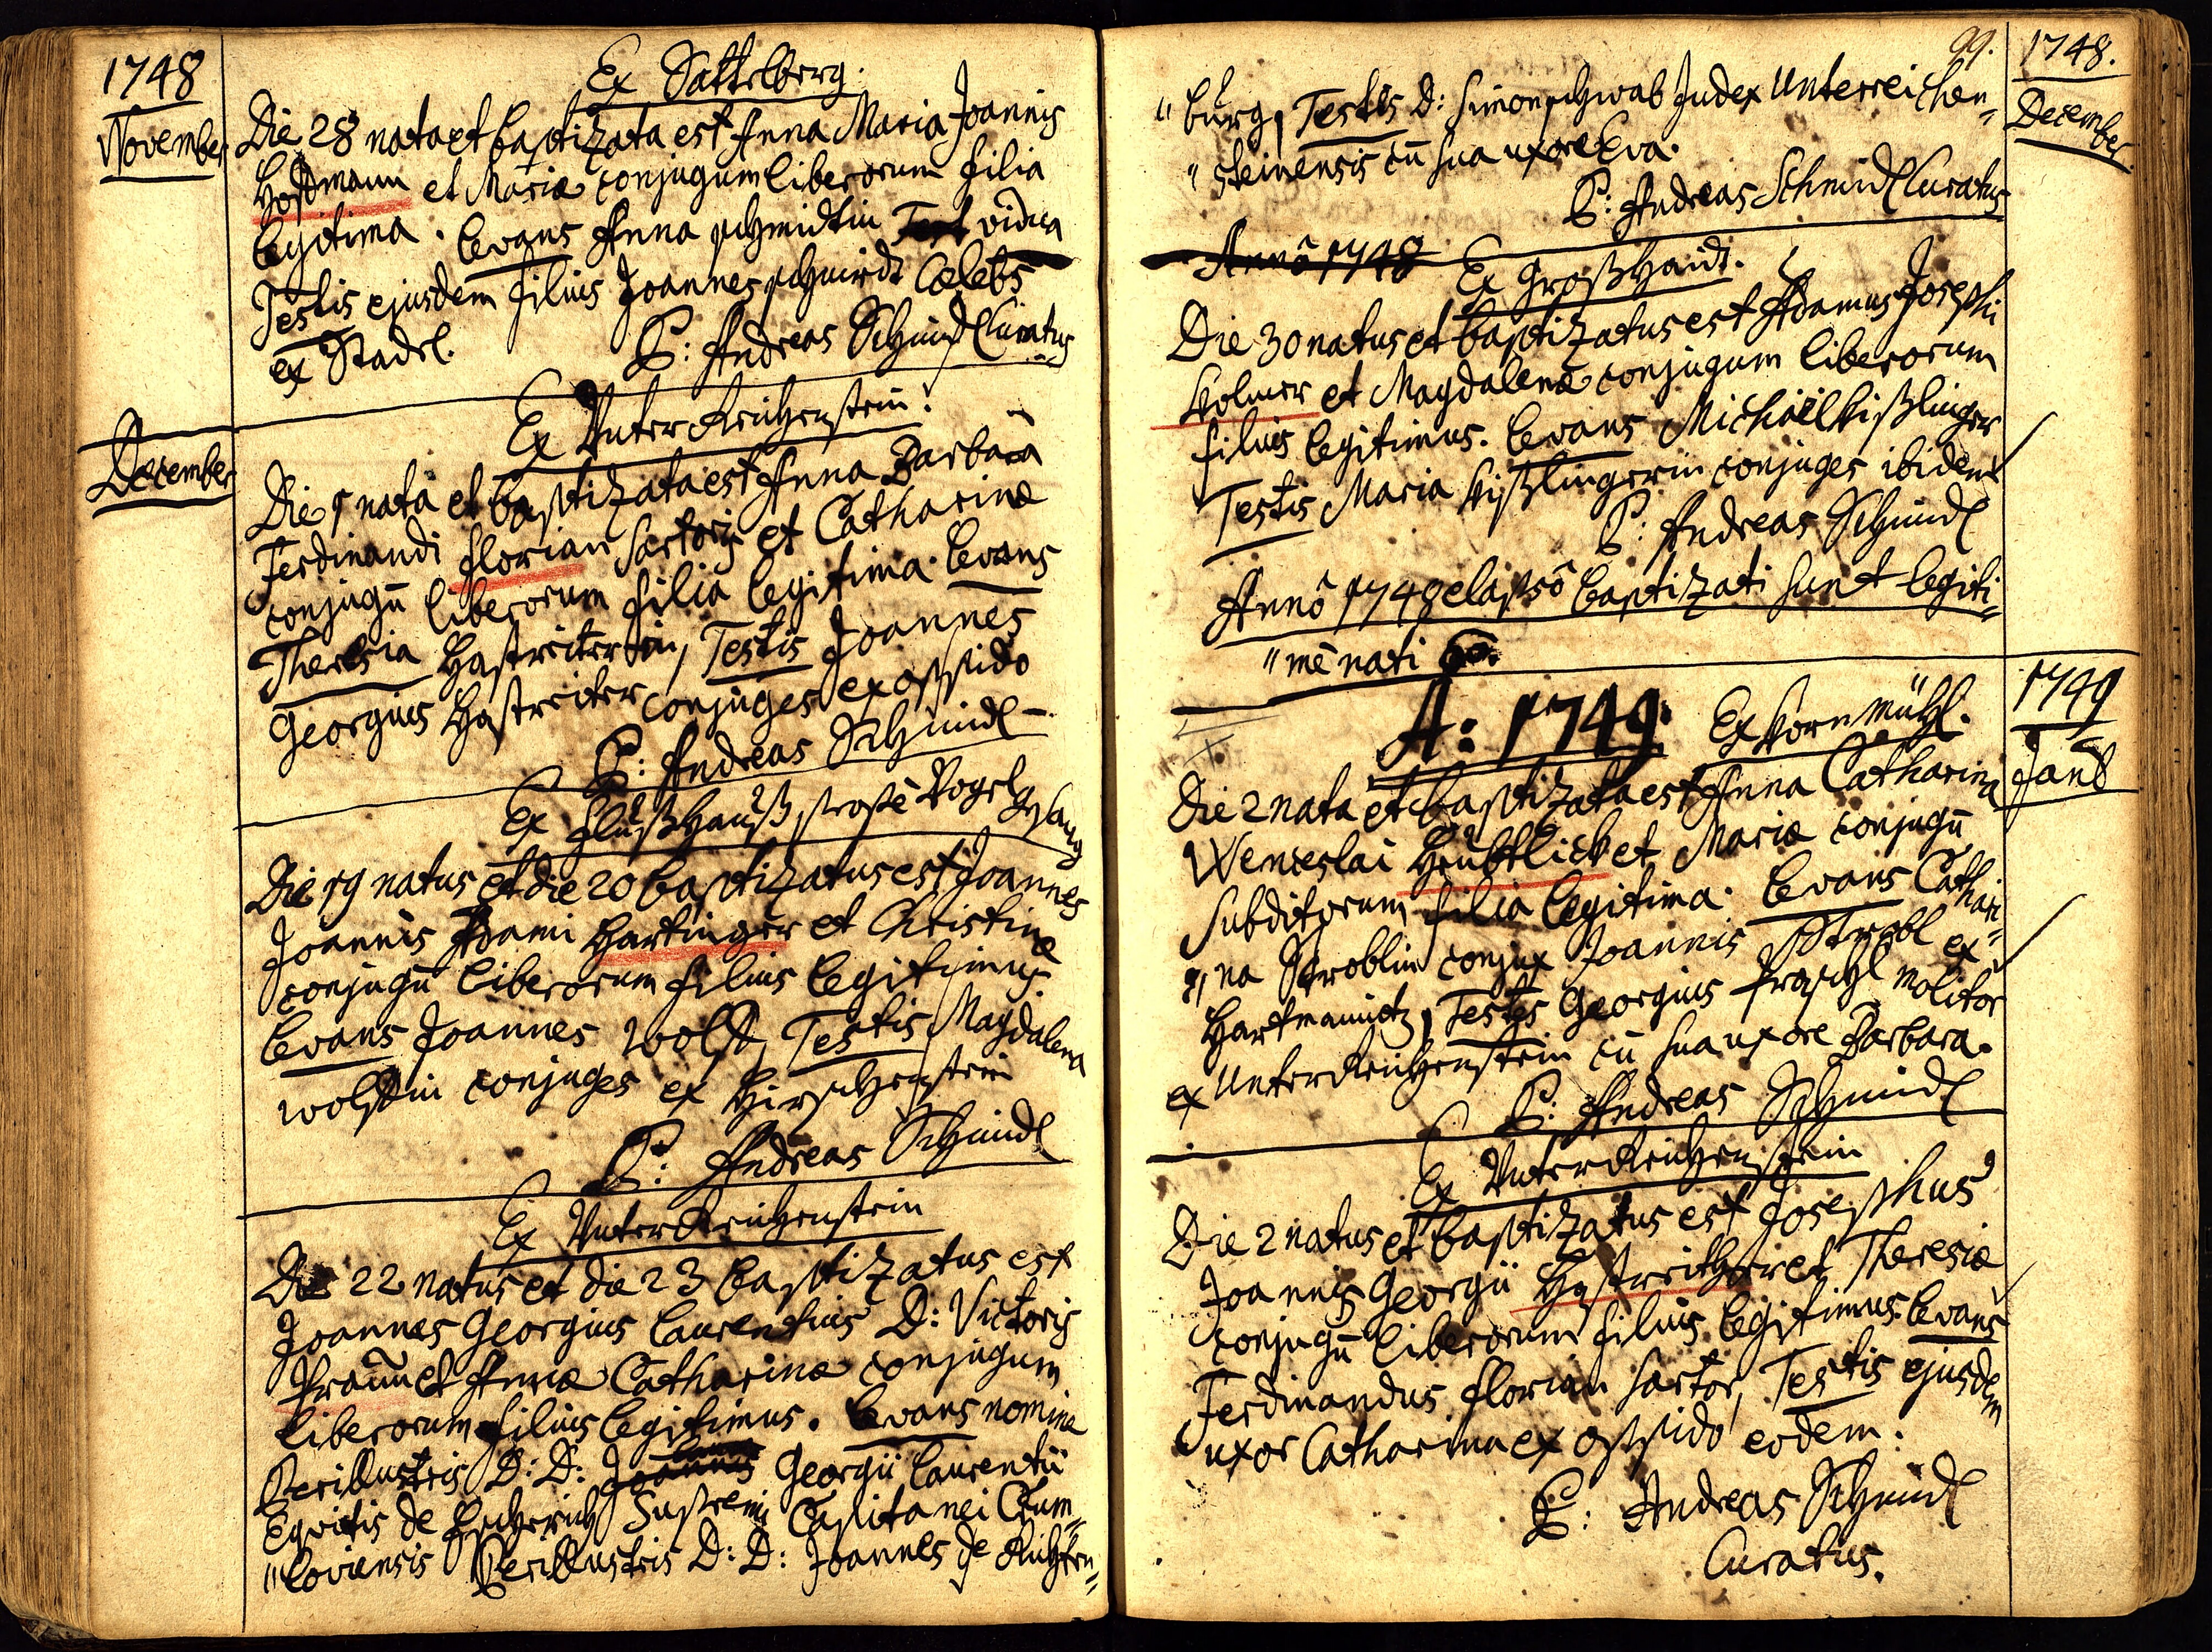 1748
November
Ex Sattelberg.
Die 28 nata et baptizata est Anna Maria Joannis
Hoffmann et Mariæ conjugum liberorum filia
legitima. Levans Anna schmidtin vidua
Testis ejusdem filius Joannes schmidt Cælebs
ex Stadl.
P: Andreas Schmidl Curatus
December
Ex Unter Reichenstein.
Die 9 nata et baptizata est Anna Barbara
Ferdinandi florian sartoris et Catharinæ
conjugū liberorum filia legitima. Levans
Theresia Hastreiterin, Testis Joannes
Georgius Hastreiter conjuges ex oppido
P: Andreas Schmidl
Ex flusshauss Vogelgsang
Die 19 natus et die 20 baptizatus est Joannes
Joannis Adami Hartinger et Christinæ
conjugū liberorum filius legitimus.
Levans Joannes wolff, Testis Magdalena
wolffin conjuges ex Hirschenstein
P: Andreas Schmidl
Ex Unter Reichenstein
Die 22 natus et die 23 baptizatus est
Joannes Georgius Laurentius D: Victoris
et Annæ Catharinæ conjugum
liberorum filius legitimus. Levans nomine
Perillustris D: D: Georgii Laurentii
Equitis de Supremi Capitanei Crum=
"loviensis Perillustris D: D: Joannes de
99.
1748.
December
"burg, Testis D: Simon schwab Judex Unterreichen=
"steinensis cū sua uxore Eva.
P: Andreas Schmidl Curatus
Annô 1748
Ex Grosshaidt.
Die 30 natus et baptizatus est Adamus Josephi
Kolmer et Magdalenæ conjugum liberorum
filius legitimus. Levans Michäel kisslinger
Testis Maria kisslingerin conjuges ibidem
P: Andreas Schmidl
Annô 1748 elapsô baptizati sunt legiti=
"mè nati
A: 1749. Ex Kornmühl.
1749
Die 2 nata et baptizata est Anna Catharina
Wenceslai et Mariæ conjugū
subditorum filia legitima. Levans Cathari=
"na Stroblin conjux Joannis Strobl ex
Hartmanitz, Testes Georgius molitor
ex Unter Reichenstein cū sua uxore Barbara.
P: Andreas Schmidl
Ex Unter Reichenstein
Die 2 natus et baptizatus est Josephus
Joannis Georgii Hastreither et Theresiæ
conjugū liberorum filius legitimus. Levans
Ferdinandus florian sartor, Testis ejusdem
uxor Catharina ex oppido eodem.
P: Andreas Schmidl
Curatus.